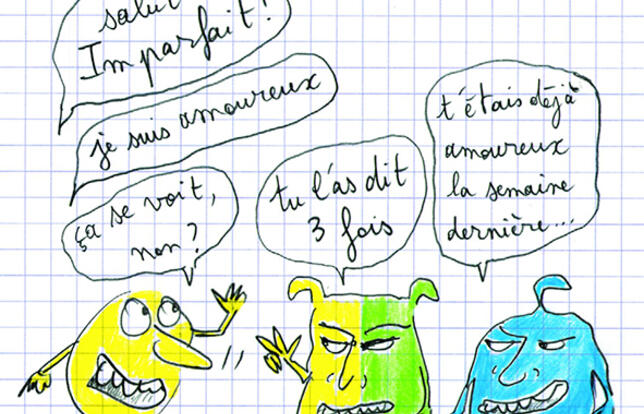 salut
Imparfait!
je suis amoureux
ça se voit,
non?
tu l'as dit
3 fois
t'étais déjà
amoureux
la semaine
dernière...